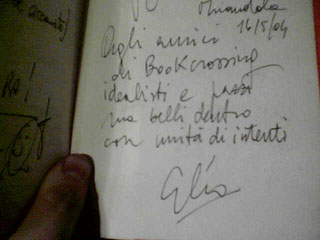 Mirandola
16/5/04
Agli amici
di BooKcrossing
idealisti e pazzi
ma belli dentro
con unità di intenti
RO!